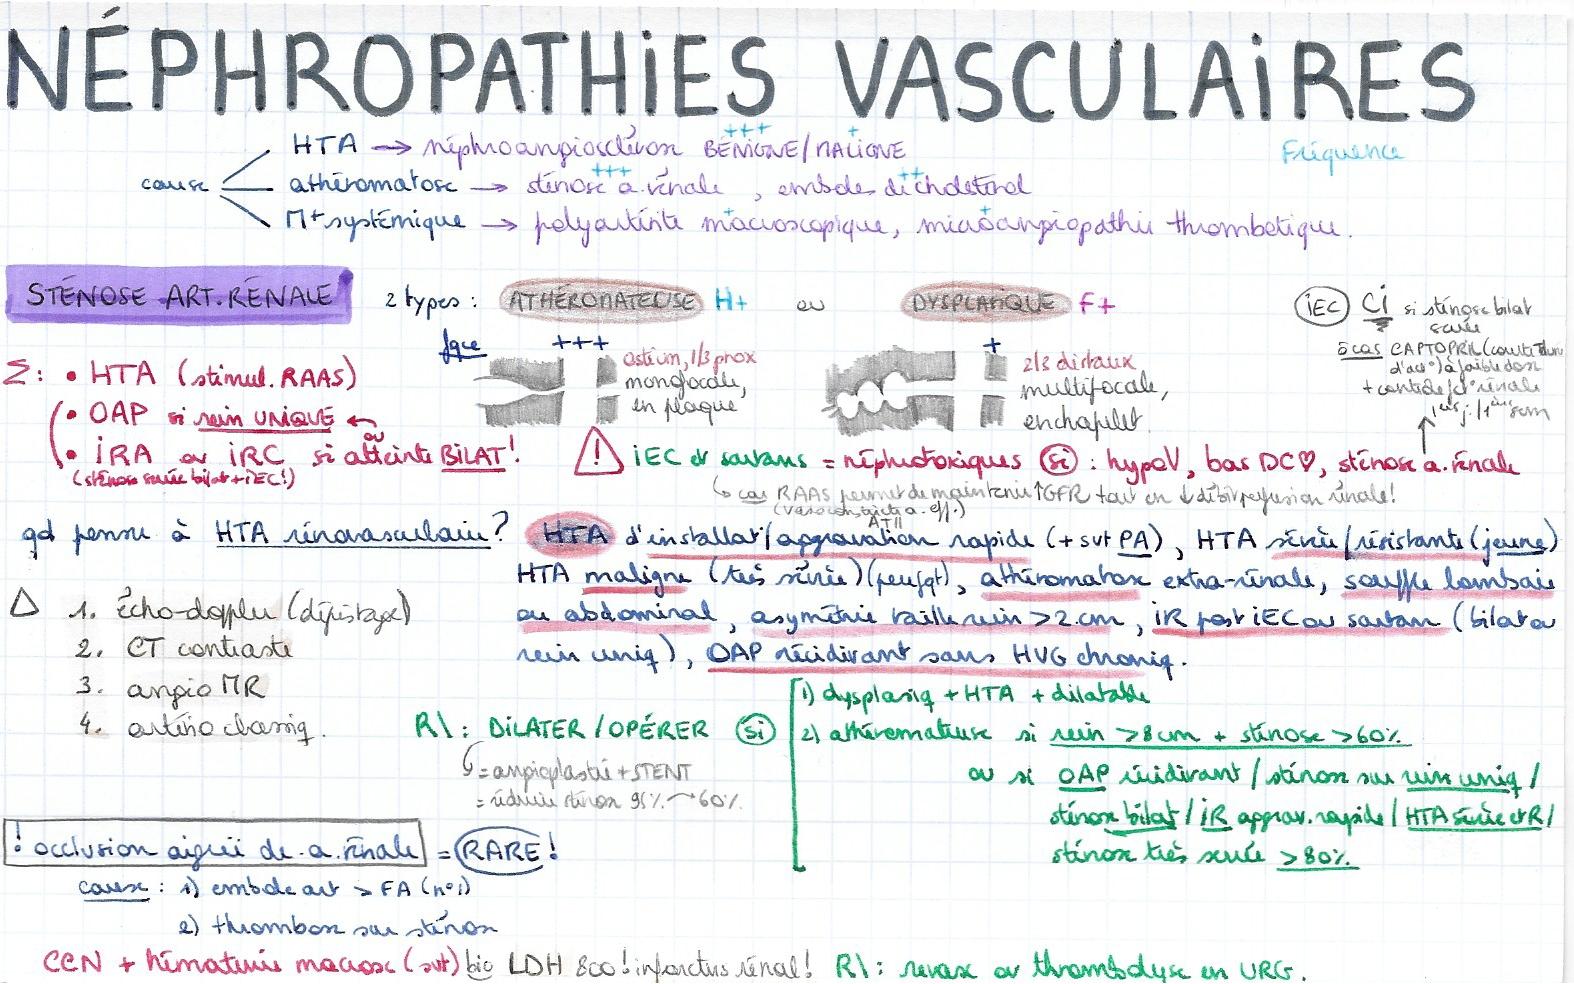 NÉPHROPATHiES VASCULAiRES
cause
HTA → néphroangiosclérose BÉNiGNE/MALiGNE
+++ +
Fréquence
athéromatose → sténose a. rénale, emboles de cholestérol
+++ ++
M+ systémique → polyartérite macroscopique, microangiopathie thrombotique.
+ +
STÉNOSE ART. RÉNALE
2 types : ATHÉROMATEUSE H+ ou DYSPLASiQUE F+
fqce +++ +
ostium, 1/3 prox
monofocale,
en plaque
2/3 distaux
multifocale,
en chapelet.
iEC Ci si sténose bilat
serrée
CAPTOPRIL
à faible dose
+ contrôle fct° rénale
Σ : • HTA (stimul. RAAS)
• OAP si rein UNiQUE
ou
• iRA ou iRC si atteinte BiLAT !
(sténose serrée bilat + iEC !)
! iEC et sartans = néphrotoxiques si : hypoV, bas DC♡, sténose a. rénale
↳ car RAAS permet de maintenir ↑GFR tout en ↓ débit perfusion rénale !
(vasoconstrict a. eff.)
ATII
qd penser à HTA rénovasculaire ?
HTA d'installat°/aggravation rapide (+ svt PA), HTA sévère/résistante (jeune)
HTA maligne (très sévère) (peu fqt), athéromatose extra-rénale, souffle lombaire
ou abdominal, asymétrie taille rein > 2 cm, iR post iEC ou sartan (bilat ou
rein uniq), OAP récidivant sans HVG chroniq.
Δ 1. écho-doppler (dépistage)
2. CT contraste
3. angio MR
4. artério classiq.
R\ : DiLATER / OPÉRER si
↳ = angioplastie + STENT
= réduire sténose 95% → 60%.
1) dysplasiq + HTA + dilatable
2) athéromateuse si rein > 8 cm + sténose > 60%
ou si OAP récidivant / sténose sur rein uniq /
sténose bilat / iR aggrav. rapide / HTA sévère et R /
sténose très serrée > 80%.
! occlusion aiguë de a. rénale = RARE !
cause : 1) embole art > FA (n°1)
2) thrombose sur sténose
CCN + hématurie macrosc (svt) bio LDH 800 ! infarctus rénal ! R\ : revasc ou thrombolyse en URG.